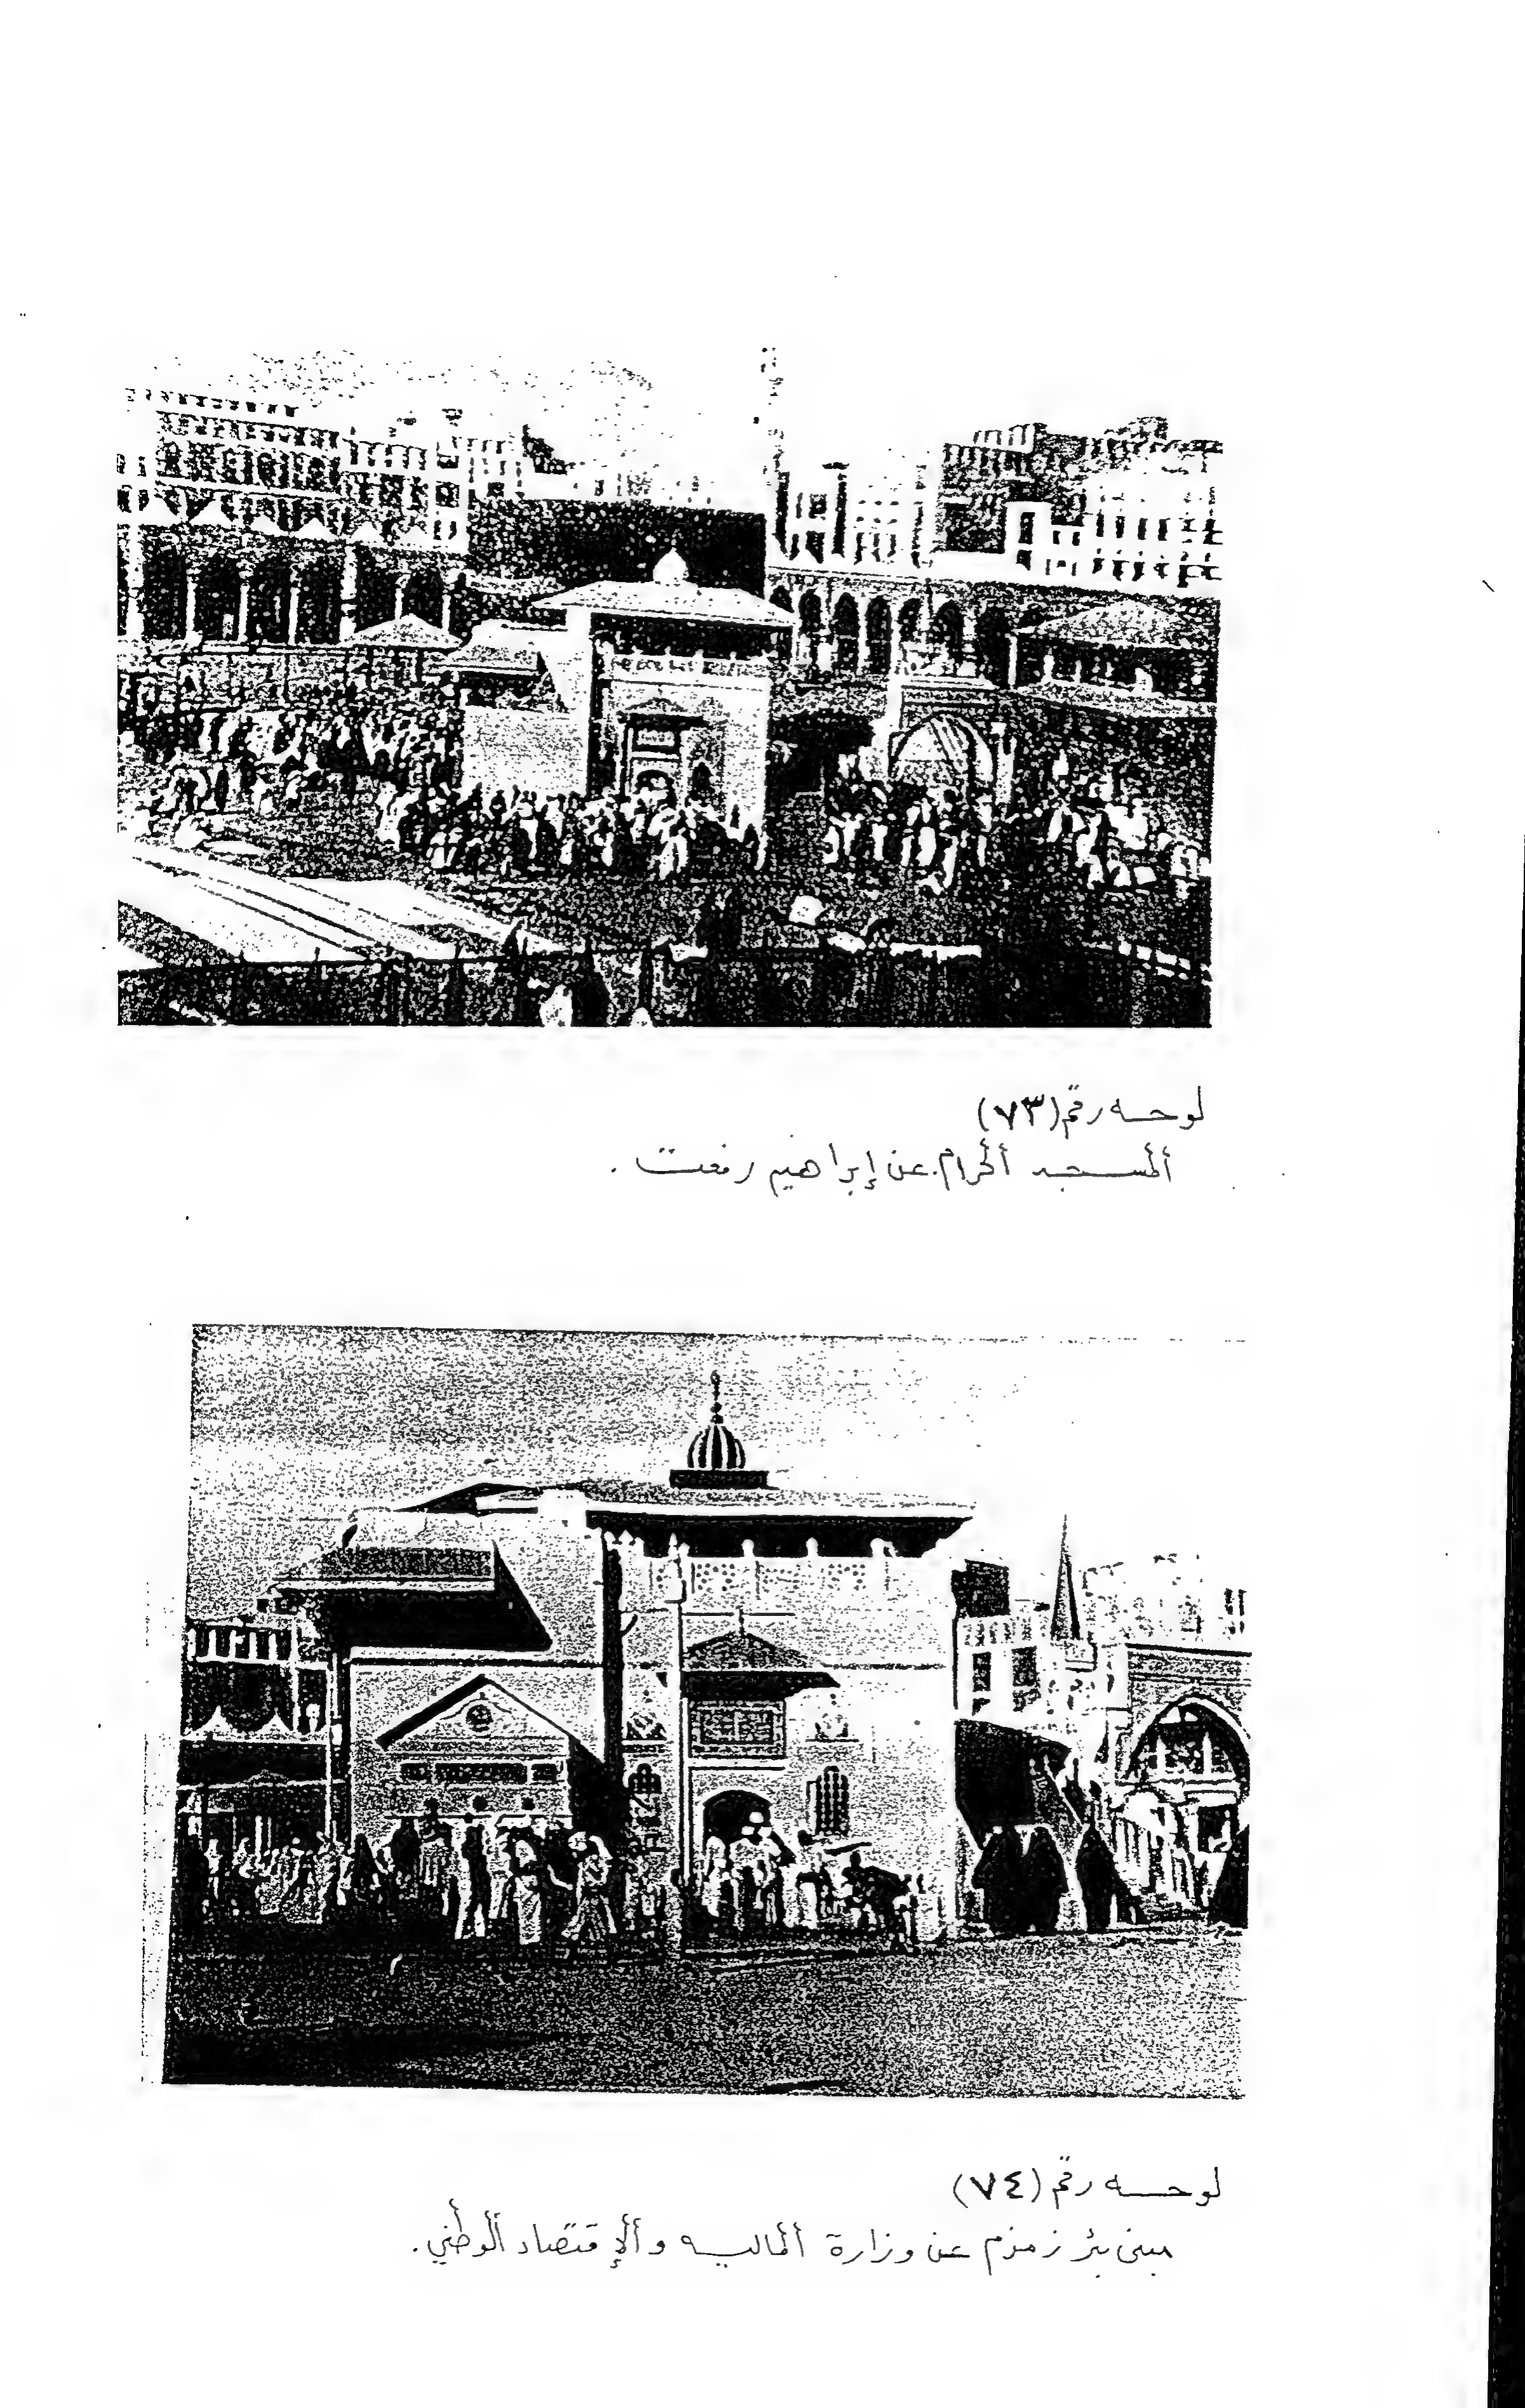 لوحه رقم (٧٣)
ألمسجد ألحرام. عن إبراهيم رفعت .
لوحه رقم (٧٤)
مبنى بئر زمزم عن وزارة ألماليه وألإقتصاد ألوطني .